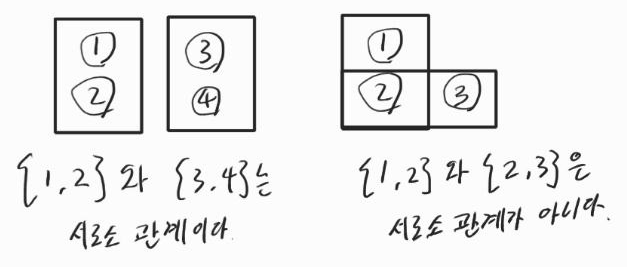 ① ③ ①
② ④ ② ③
{1,2} 와 {3.4}는
서로소 관계이다.
{1,2} 와 {2,3}은
서로소 관계가 아니다.